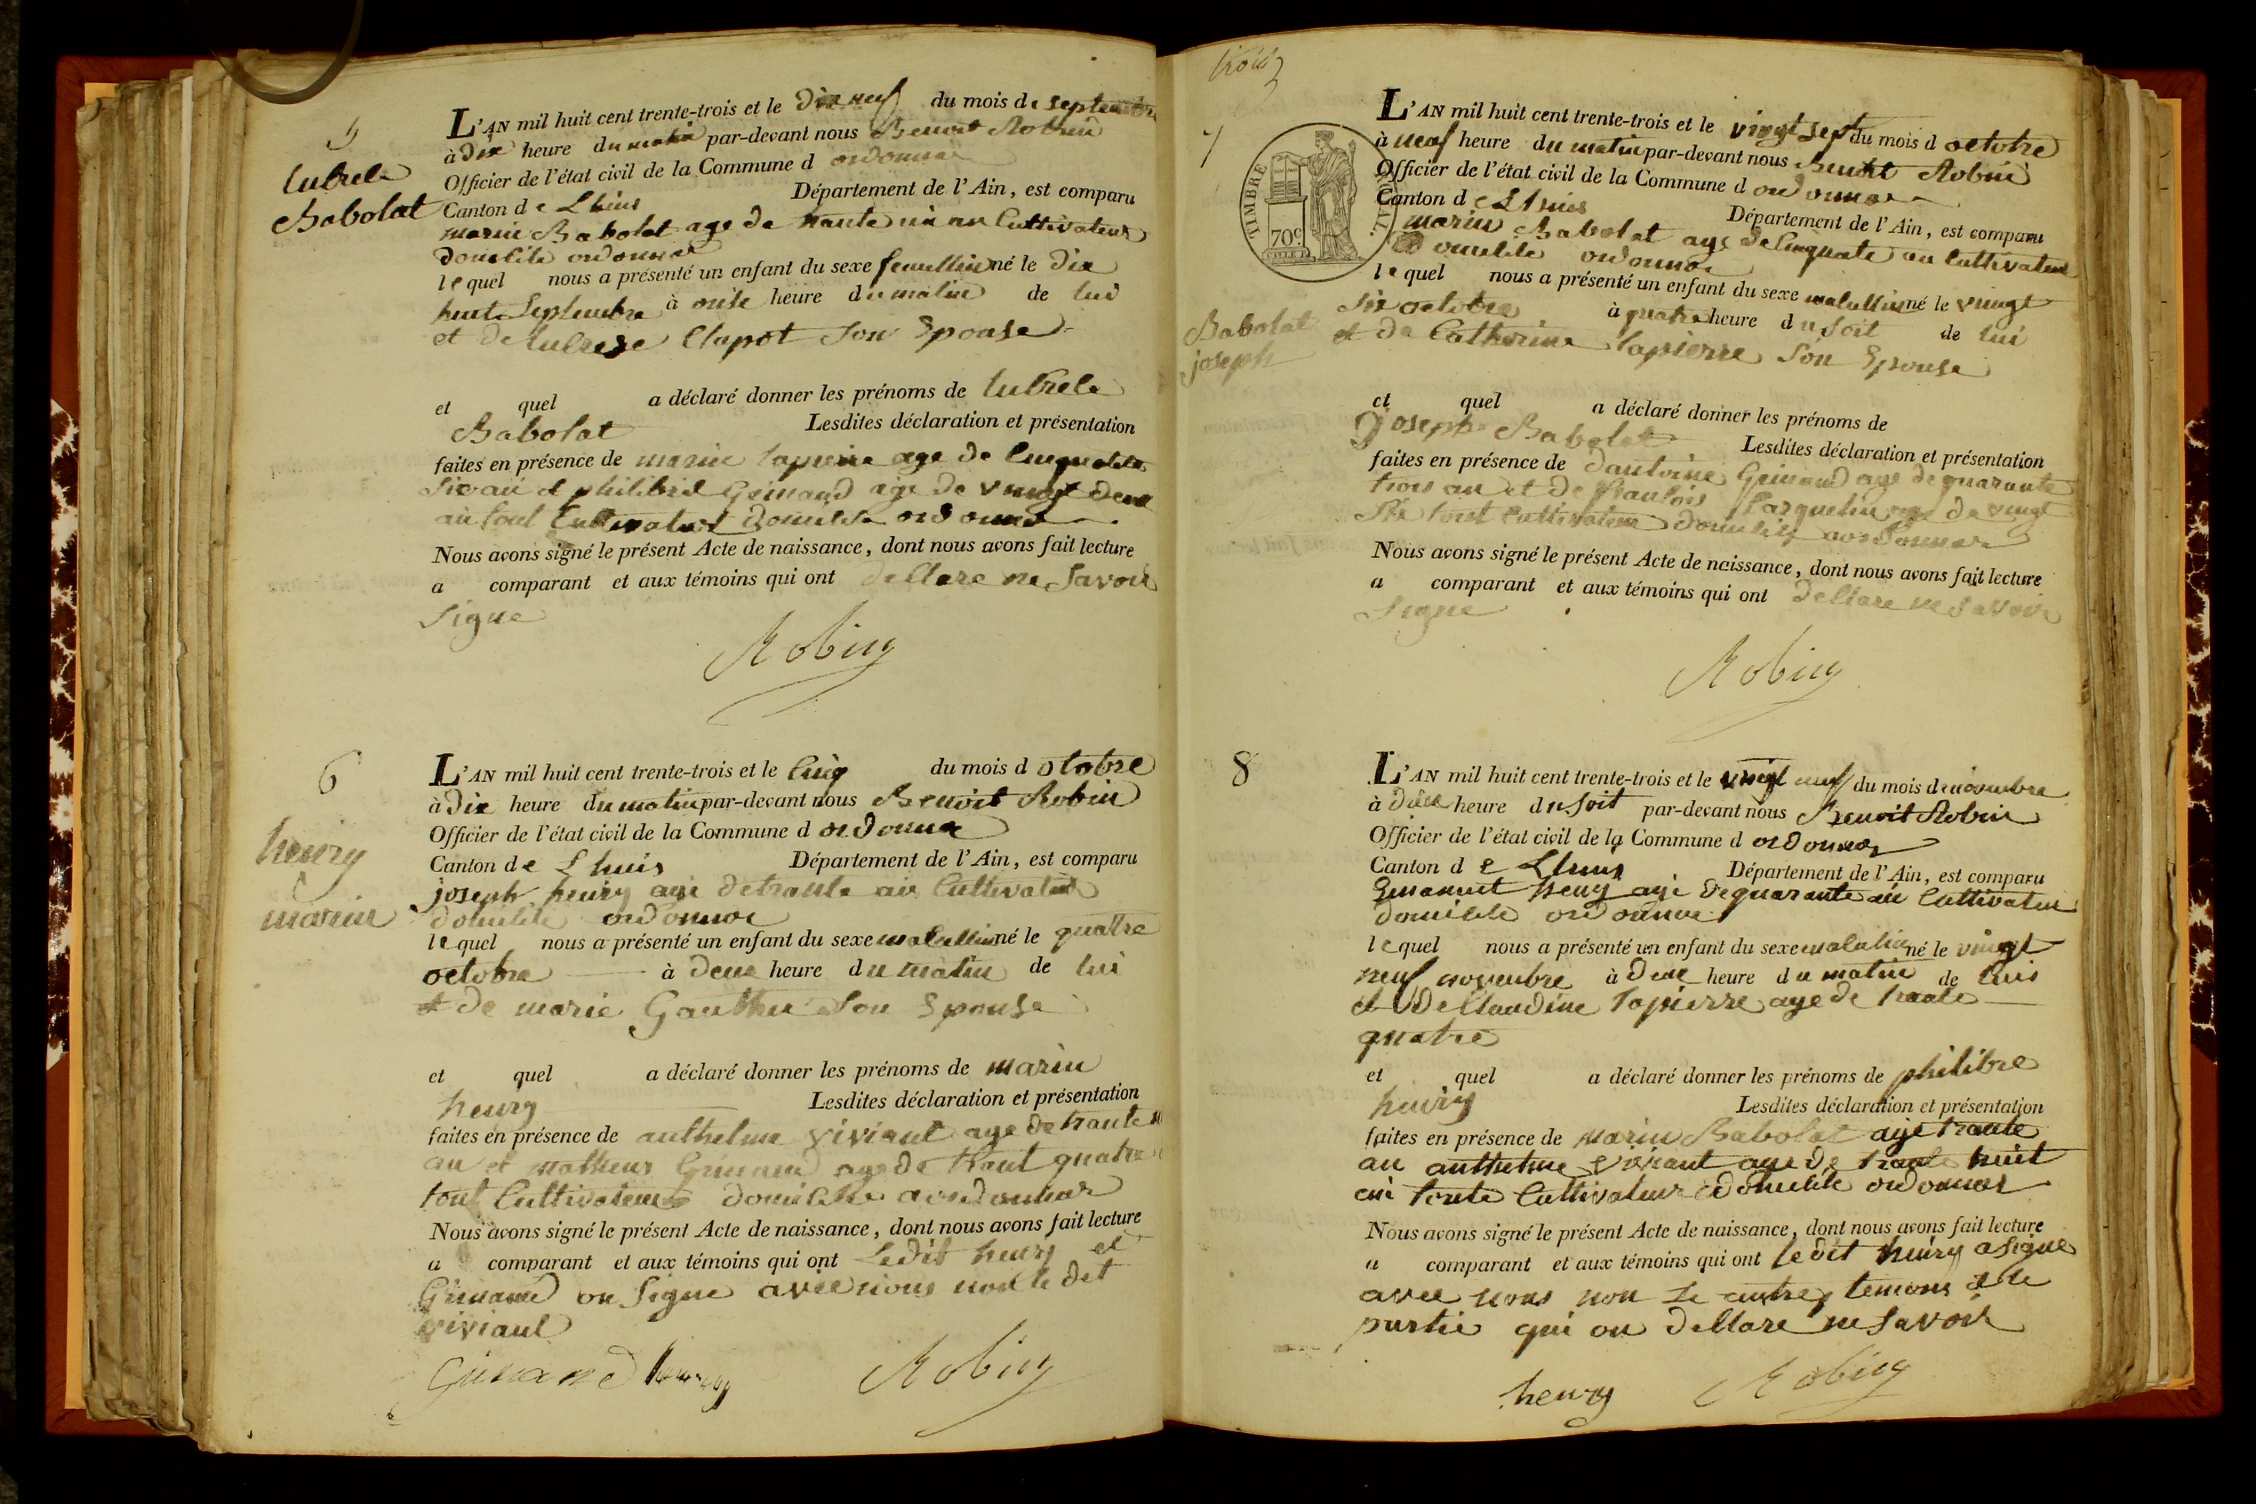 5
lubrele
Babolat
L'AN mil huit cent trente-trois et le dix neuf du mois de septembre
à dix heure du matin par-devant nous Benoit Robin
Officier de l'état civil de la Commune d ordonnas
Canton de Lhuis Département de l'Ain, est comparu
marin Babolat age de trante un an Cultivateur
domilile ordonnas
lequel nous a présenté un enfant du sexe femullin né le dix
huit Septembre à onse heure du matin de lui
et de Clapot son Epouse
et quel a déclaré donner les prénoms de lubrele
Babolat Lesdites déclaration et présentation
faites en présence de marin lapierre age de
et philibre Grinand age de vingt deux
an tout Cultivateur domilile ordonnas
Nous avons signé le présent Acte de naissance, dont nous avons fait lecture
a comparant et aux témoins qui ont dellare ne Savoir
Signe
Robin
6
henry
marin
L'AN mil huit cent trente-trois et le Cinq du mois d otobre
à dix heure du matin par-devant nous Benoit Robin
Officier de l'état civil de la Commune d ordonnas
Canton de Lhuis Département de l'Ain, est comparu
joseph henry age de trante an Cultivateur
domilile ordonnas
lequel nous a présenté un enfant du sexe malullin né le quatre
octobre à deux heure du matin de lui
et de marie Gauthier Son Epouse
et quel a déclaré donner les prénoms de marin
henry Lesdites déclaration et présentation
faites en présence de anthelme viviant age de trante
an et mathieur Grinand age de trant quatre
tout Cultivateur domilile a ordonnas
Nous avons signé le présent Acte de naissance, dont nous avons fait lecture
a comparant et aux témoins qui ont Ledit henry et
Grinand on Signe avec nous non le dit
viviant
Grinand henry Robin
trois
7
TIMBRE ROYAL.
70c
Babolat
joseph
L'AN mil huit cent trente-trois et le vingt sept du mois d octobre
à neuf heure du matin par-devant nous Benoit Robin
Officier de l'état civil de la Commune d ordonnas
Canton de Lhuis Département de l'Ain, est comparu
marin Babolat age de Cinquate an Cultivateur
domilile ordonnas
lequel nous a présenté un enfant du sexe malullin né le vingt
Six octobre à quatre heure du Soit de lui
et de Catherine lapierre Son Epouse
et quel a déclaré donner les prénoms de
joseph Babolat Lesdites déclaration et présentation
faites en présence de dantoine Grinand age de quarante
trois an et de franlois age de vingt
Six tout Cultivateur domilile a ordonnas
Nous avons signé le présent Acte de naissance, dont nous avons fait lecture
a comparant et aux témoins qui ont dellare ne Savoir
Signe
Robin
8
L'AN mil huit cent trente-trois et le vingt neuf du mois de novembre
à heure du Soit par-devant nous Benoit Robin
Officier de l'état civil de la Commune d ordonnas
Canton de Lhuis Département de l'Ain, est comparu
henry age de quarante an Cultivateur
domilile ordonnas
lequel nous a présenté un enfant du sexe malulin né le vingt
neuf novembre à deux heure du matin de lui
et de Claudine lapierre age de trante
quatre
et quel a déclaré donner les prénoms de philibre
henry Lesdites déclaration et présentation
faites en présence de marin Babolat age trante
an anthelme viviant age de trante huit
an toute Cultivateur domilile ordonnas
Nous avons signé le présent Acte de naissance, dont nous avons fait lecture
a comparant et aux témoins qui ont le dit henry a Signe
avec nous non le autre temons de
partie qui on dellare ne Savoir
henry Robin